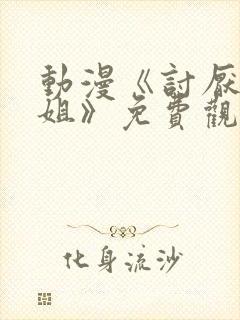 動漫《討厭
姐》免費觀
化身流沙